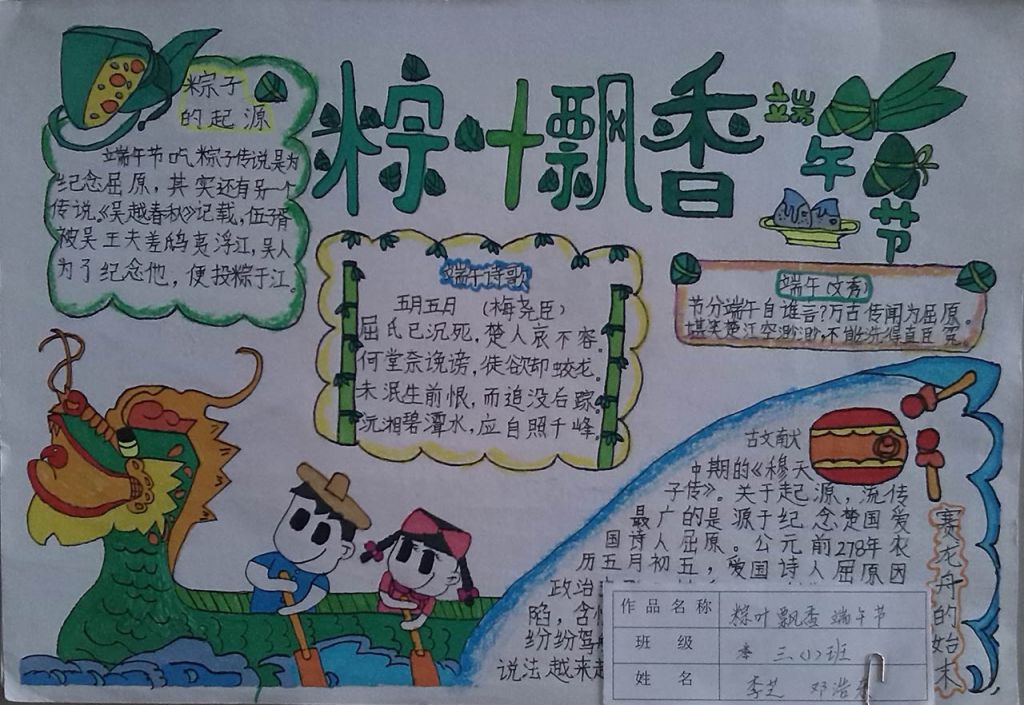 粽叶飘香
端午节
粽子
的起源
端午节吃粽子传说是为
纪念屈原，其实还有另一个
传说。《吴越春秋》记载，伍子胥
被吴王夫差鸱夷浮江，吴人
为了纪念他，便投粽于江
端午诗歌
五月五日 （梅尧臣）
屈氏已沉死，楚人哀不容。
何堂奈谗谤，徒欲却蛟龙。
未泯生前恨，而追没后踪。
沅湘碧潭水，应自照千峰。
端午（文秀）
节分端午自谁言？万古传闻为屈原。
堪笑楚江空渺渺，不能洗得直臣冤。
古文南犬
中期的《穆天
子传》。关于起源，流传
最广的是源于纪念楚国爱
国诗人屈原。公元前278年农
历五月初五，爱国诗人屈原因
政治
陷，含
纷纷驾
说法越来越
赛龙舟的始末
作品名称 粽叶飘香端午节
班级 三（1）班
姓名 李芝 邓浩